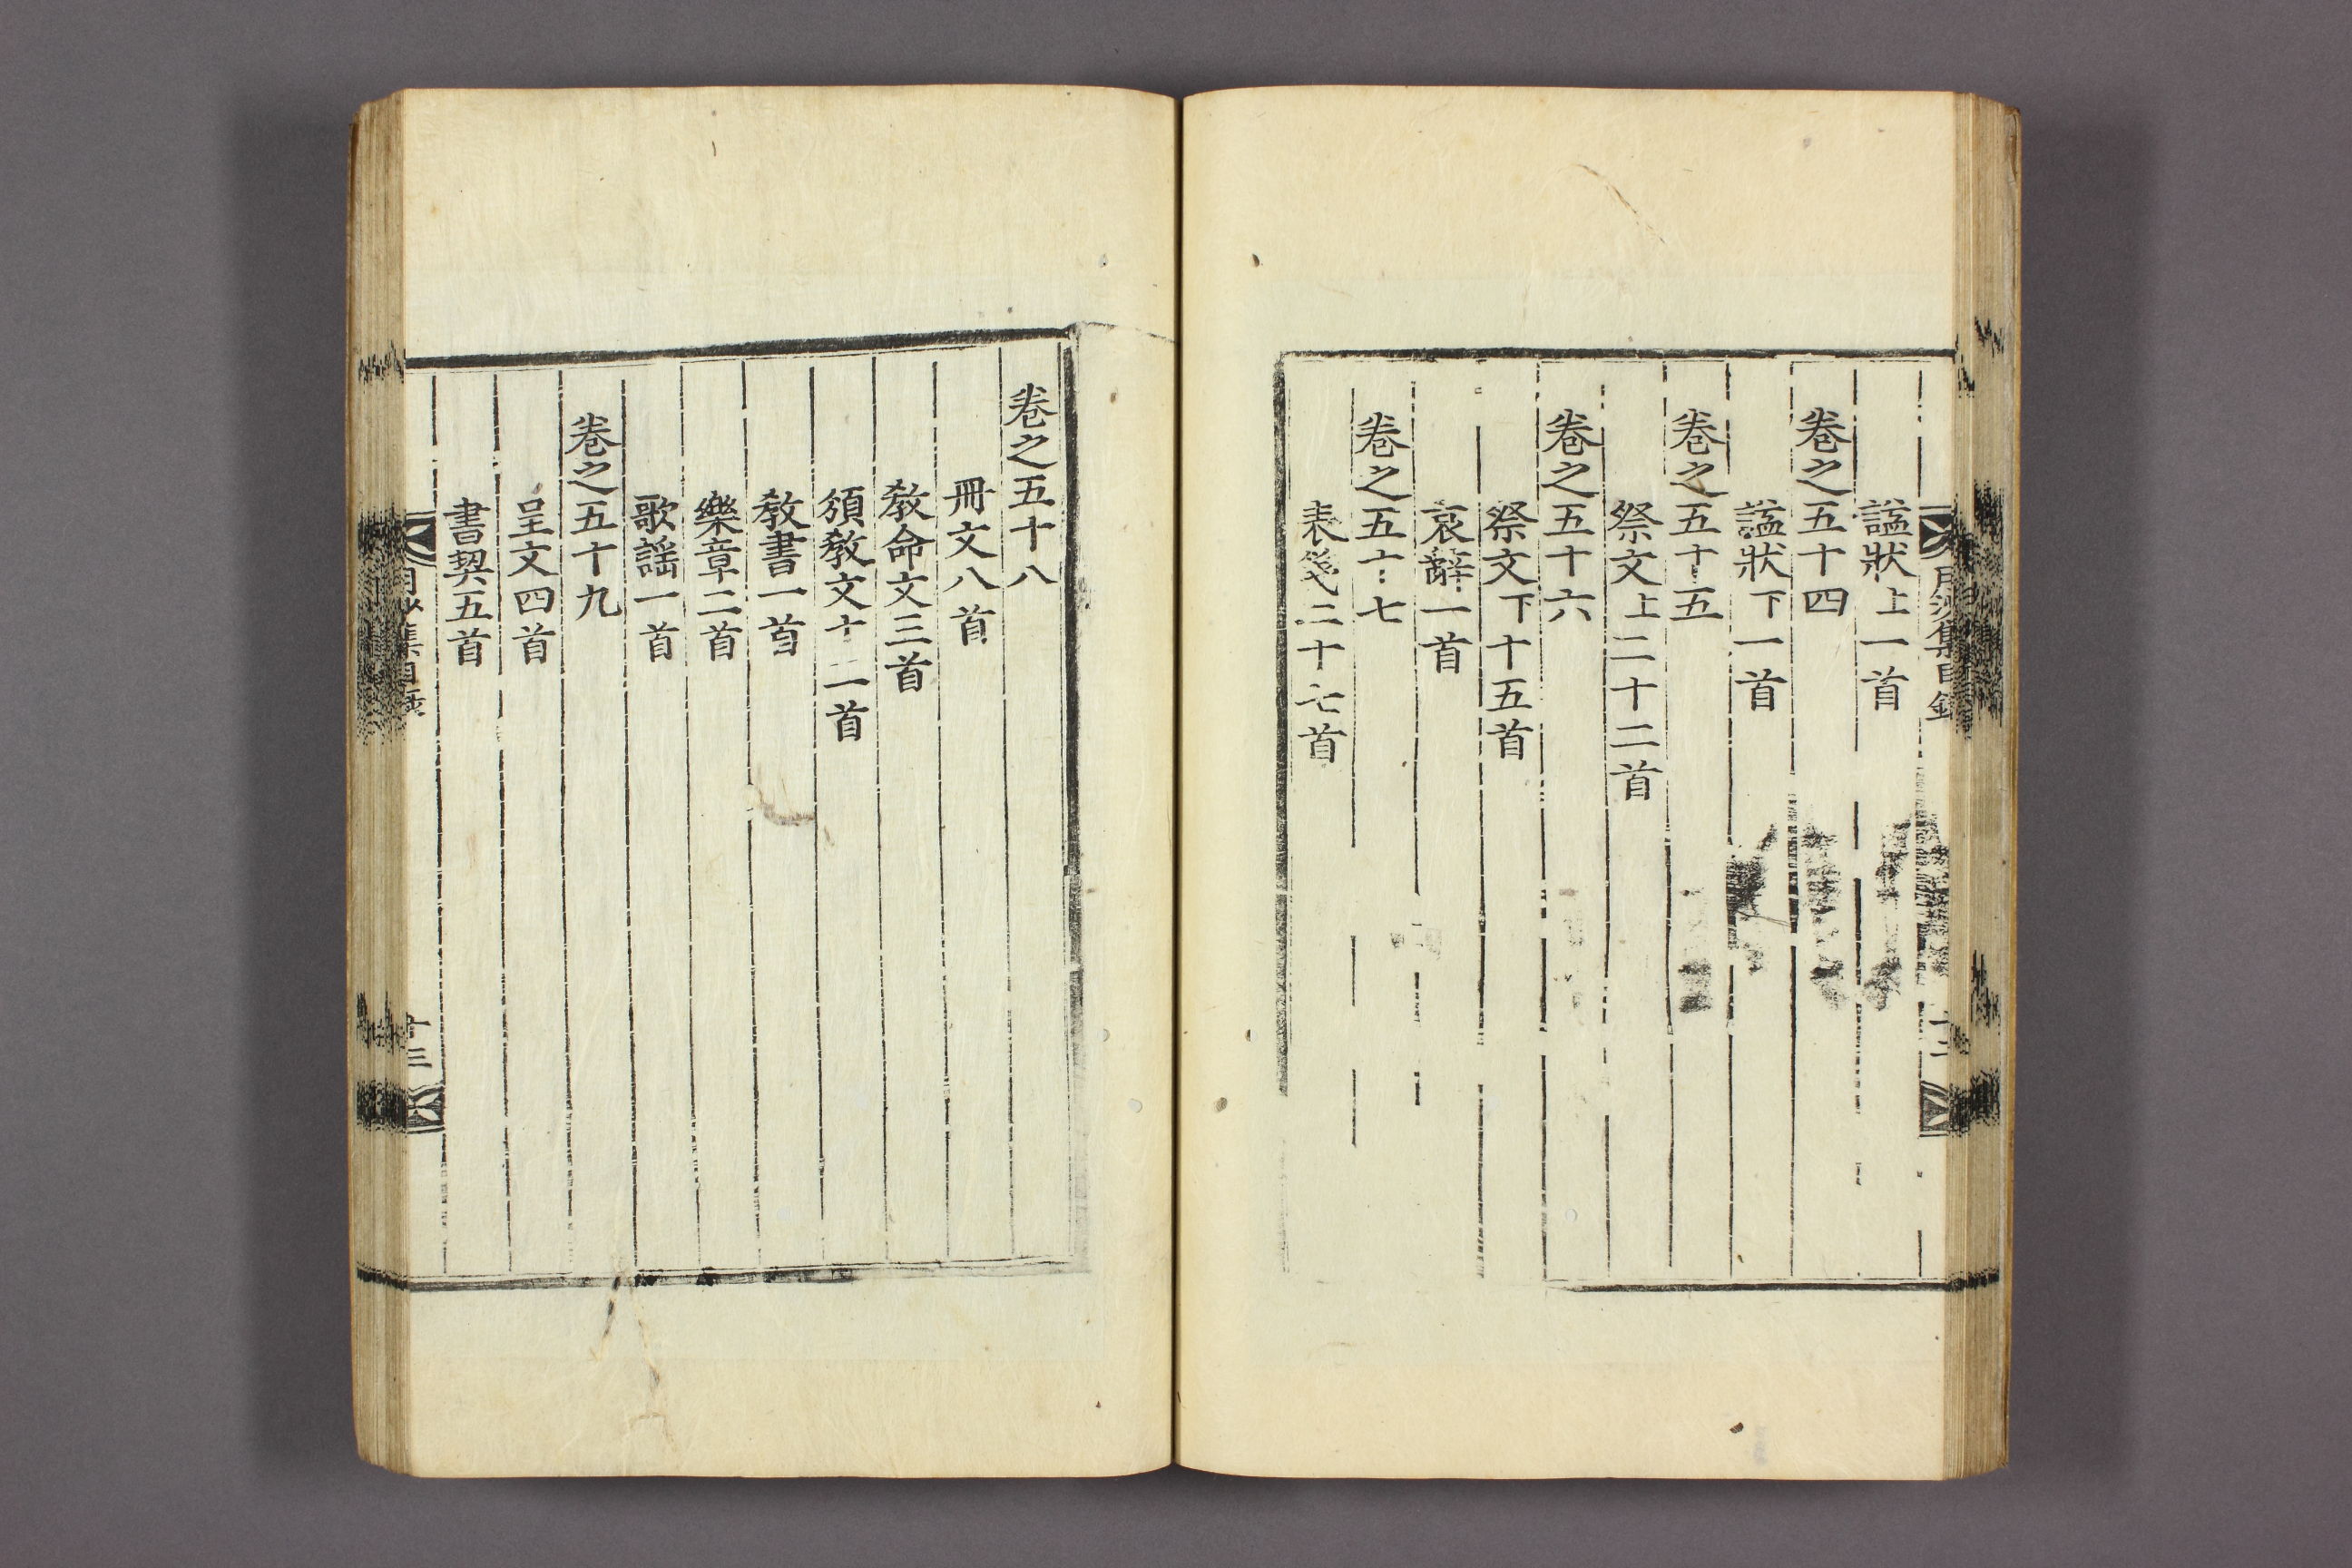 月沙集目錄
諡狀上一首
卷之五十四
諡狀下一首
卷之五十五
祭文上二十二首
卷之五十六
祭文下十五首
哀辭一首
卷之五十七
表箋二十七首
卷之五十八
冊文八首
敎命文三首
頒敎文十二首
敎書一首
樂章二首
歌謡一首
卷之五十九
呈文四首
書契五首
月沙集目錄
十三